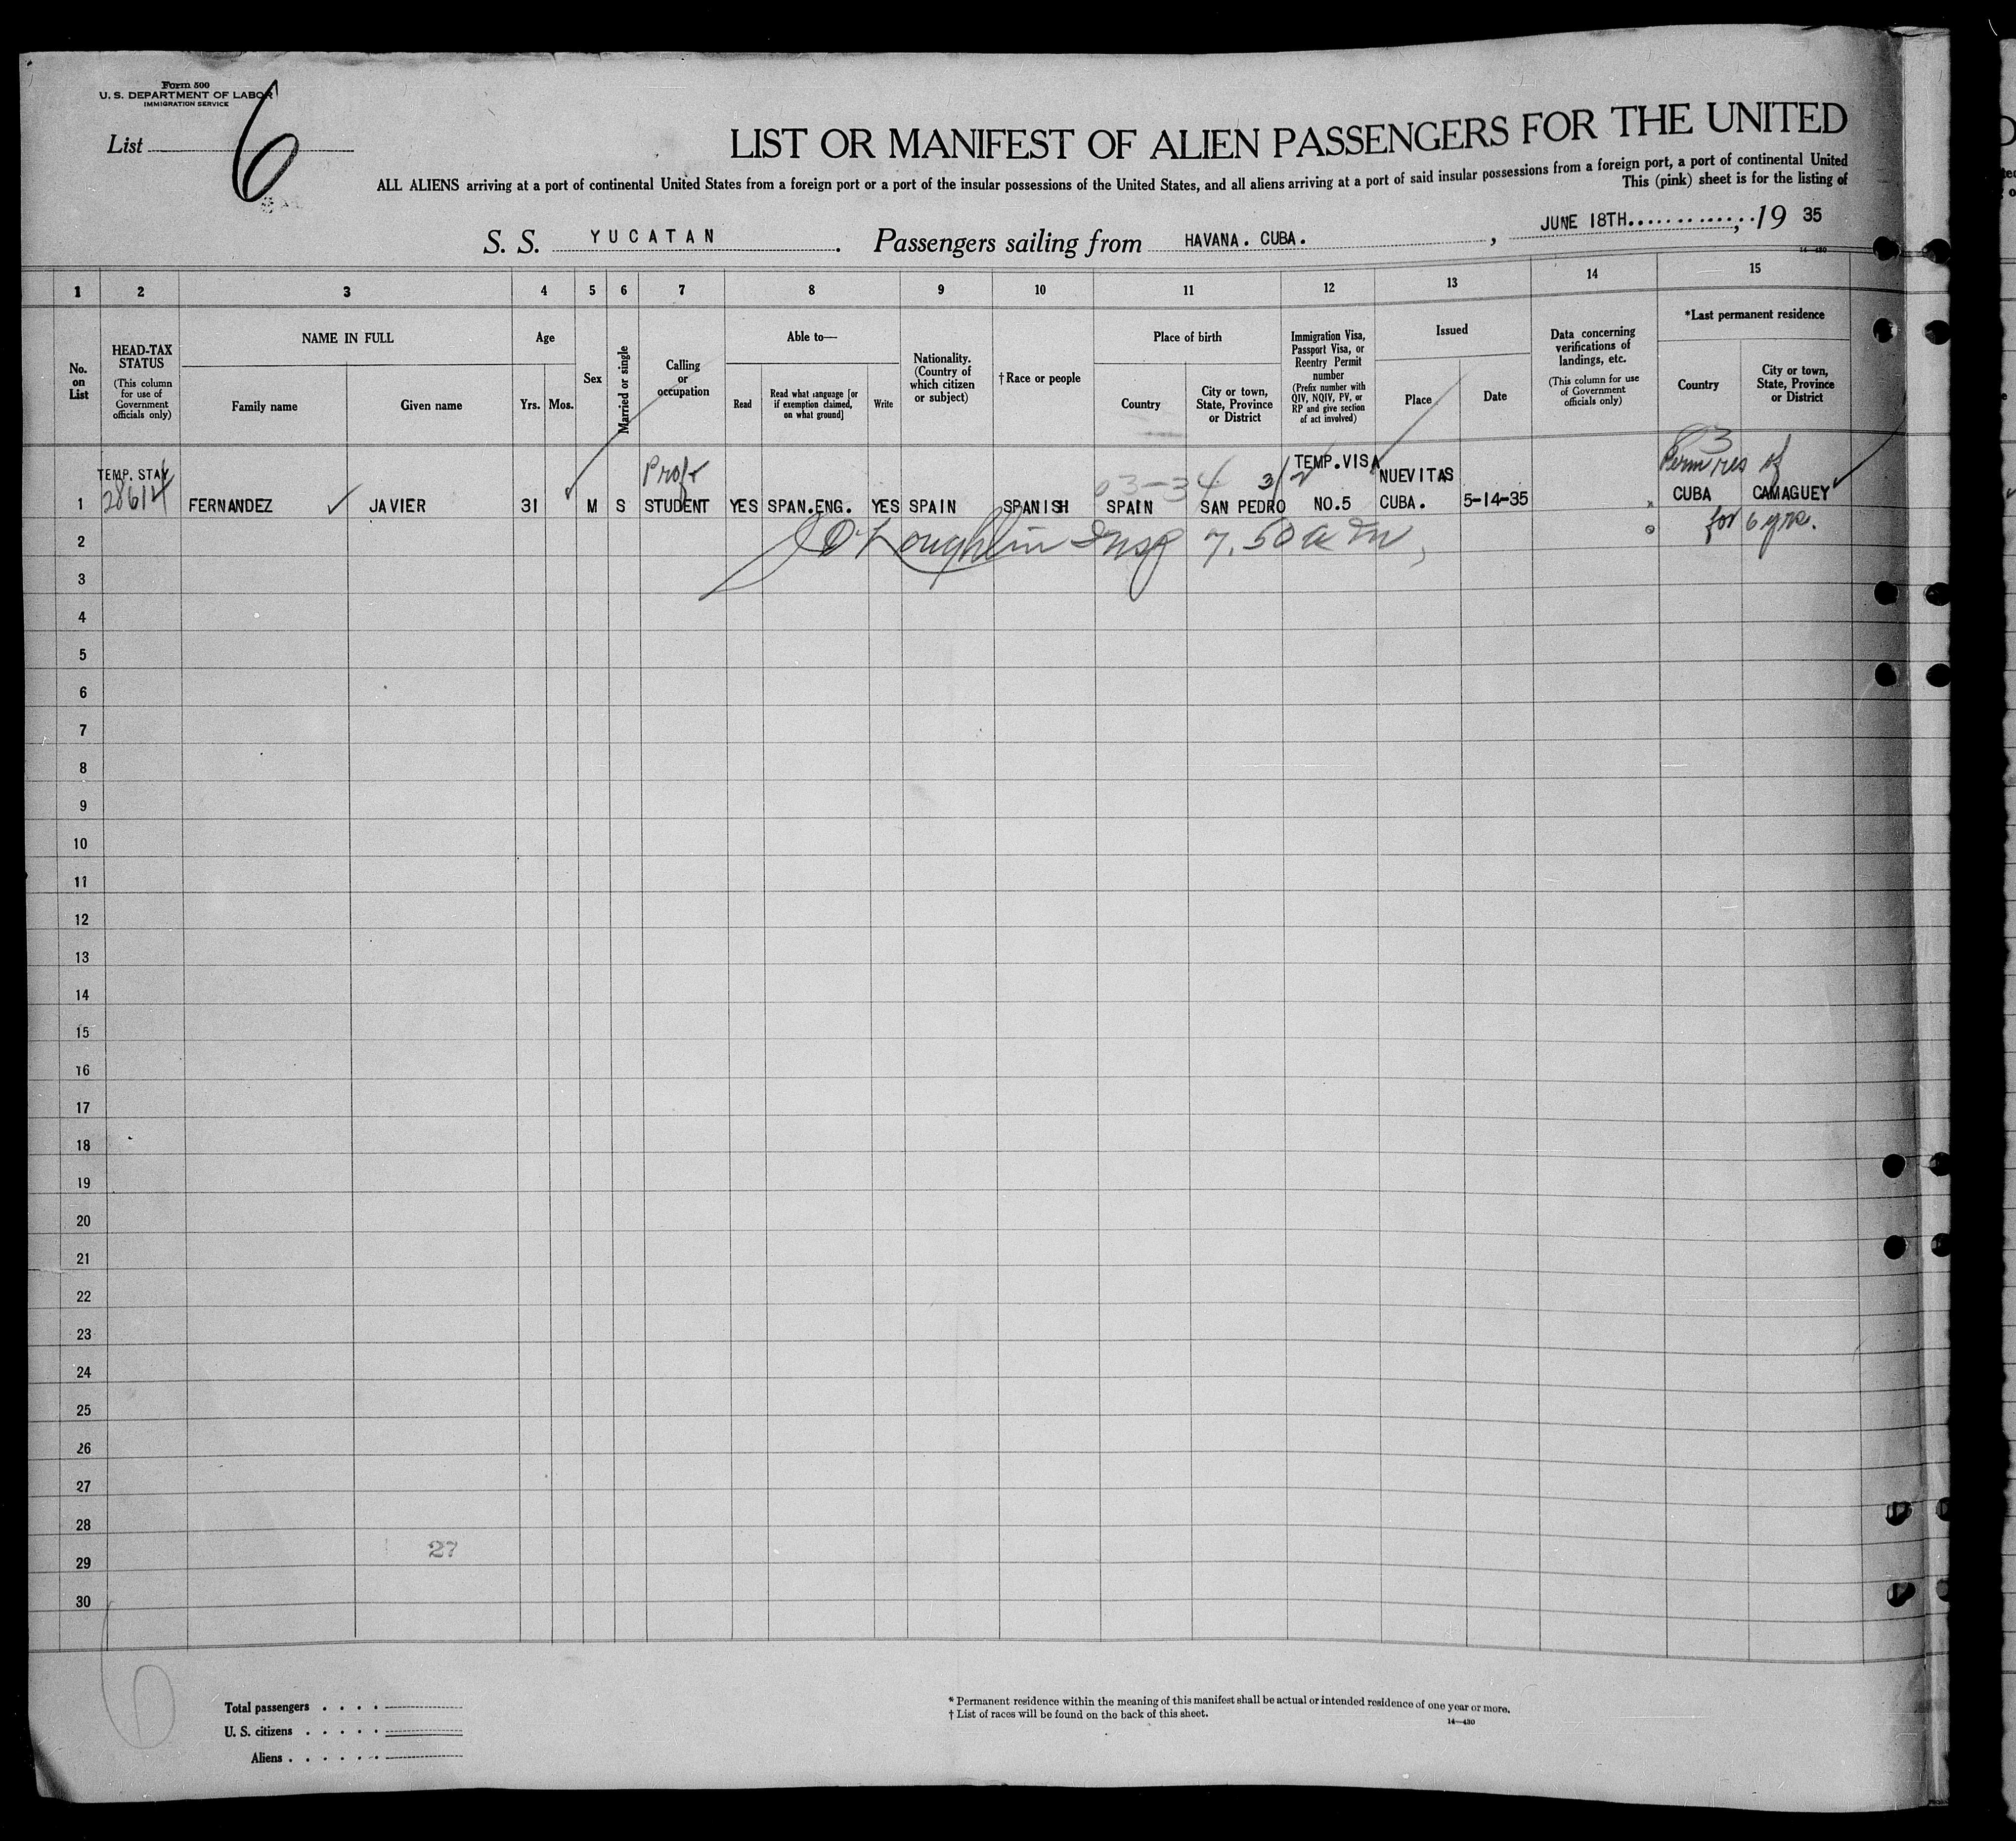 Form 500
U. S. DEPARTMENT OF LABOR
IMMIGRATION SERVICE
List 6
LIST OR MANIFEST OF ALIEN PASSENGERS FOR THE UNITED
ALL ALIENS arriving at a port of continental United States from a foreign port or a port of the insular possessions of the United States, and all aliens arriving at a port of said insular possessions from a foreign port, a port of continental United
This (pink) sheet is for the listing of
S. S. YUCATAN. Passengers sailing from HAVANA. CUBA., JUNE 18TH............., 19 35
14—430
1 2 3 4 5 6 7 8 9 10 11 12 13 14 15
No. on List
HEAD-TAX STATUS
(This column for use of Government officials only)
NAME IN FULL
Family name
Given name
Age
Yrs.
Mos.
Sex
Married or single
Calling or occupation
Able to—
Read
Read what language [or if exemption claimed, on what ground]
Write
Nationality. (Country of which citizen or subject)
†Race or people
Place of birth
Country
City or town, State, Province or District
Immigration Visa, Passport Visa, or Reentry Permit number
(Prefix number with QIV, NQIV, PV, or RP and give section of act involved)
Issued
Place
Date
Data concerning verifications of landings, etc.
(This column for use of Government officials only)
*Last permanent residence
Country
City or town, State, Province or District
TEMP. STAY Prof TEMP.VISA NUEVITAS Perm res of
1 28614 FERNANDEZ JAVIER 31 M S STUDENT YES SPAN.ENG. YES SPAIN SPANISH SPAIN SAN PEDRO NO.5 CUBA. 5-14-35 CUBA CAMAGUEY
2 O'Loughlin Insp 7.50 am for 6 yrs.
3
4
5
6
7
8
9
10
11
12
13
14
15
16
17
18
19
20
21
22
23
24
25
26
27
28
27
29
30
Total passengers . . . .
U. S. citizens . . . . .
Aliens . . . . . .
* Permanent residence within the meaning of this manifest shall be actual or intended residence of one year or more.
† List of races will be found on the back of this sheet.
14—430